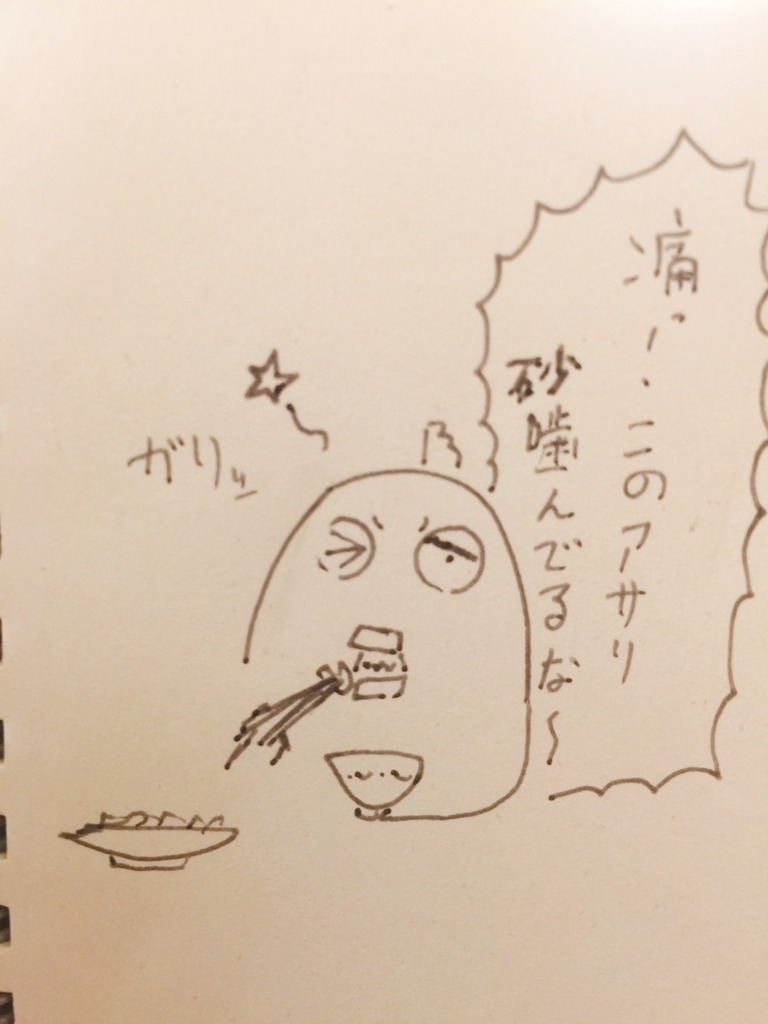 痛い、このアサリ
砂噛んでるな〜
ガリッ